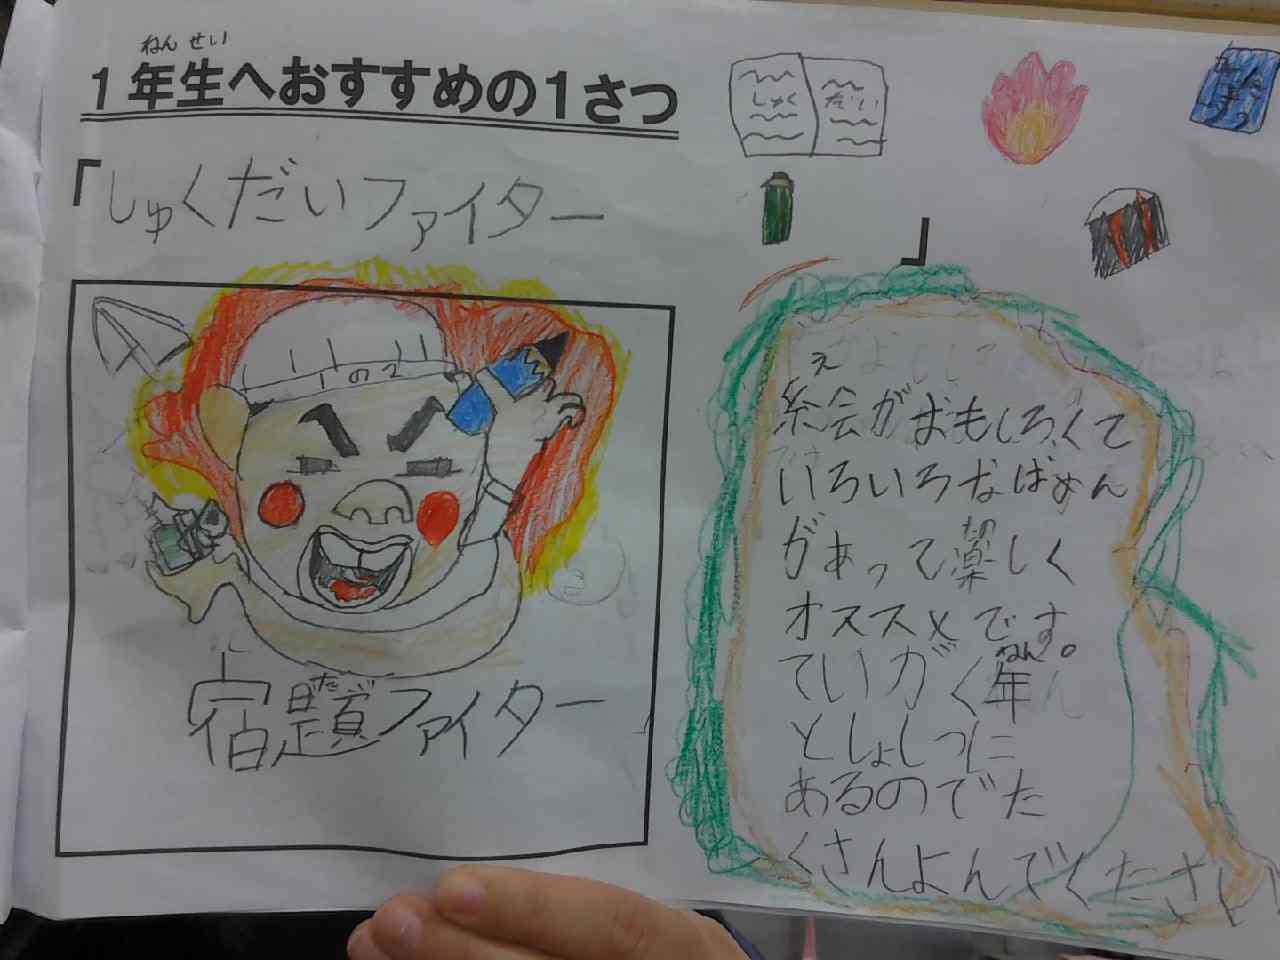 ねんせい
1年生へおすすめの1さつ
「しゅくだいファイター
」
しゅく だい
1の2
しゅくだい
宿題ファイター
え
絵会がおもしろくて
いろいろなばめん
たの
があって楽しく
オススメです。
ねん
ていがく年
としょしつに
あるのでた
くさんよんでください!